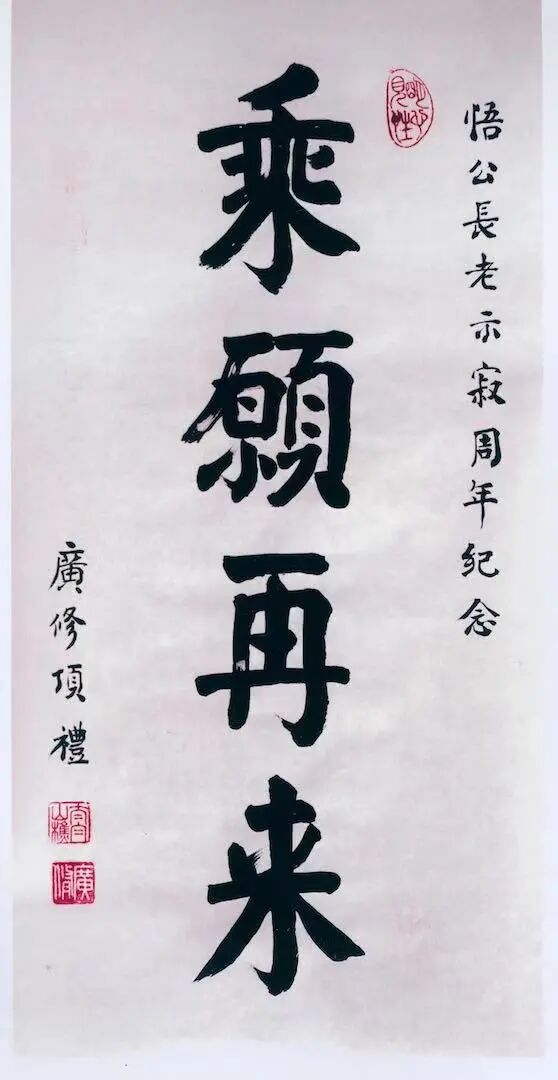 悟公長老示寂周年纪念
乘願再来
廣修頂禮
廣修